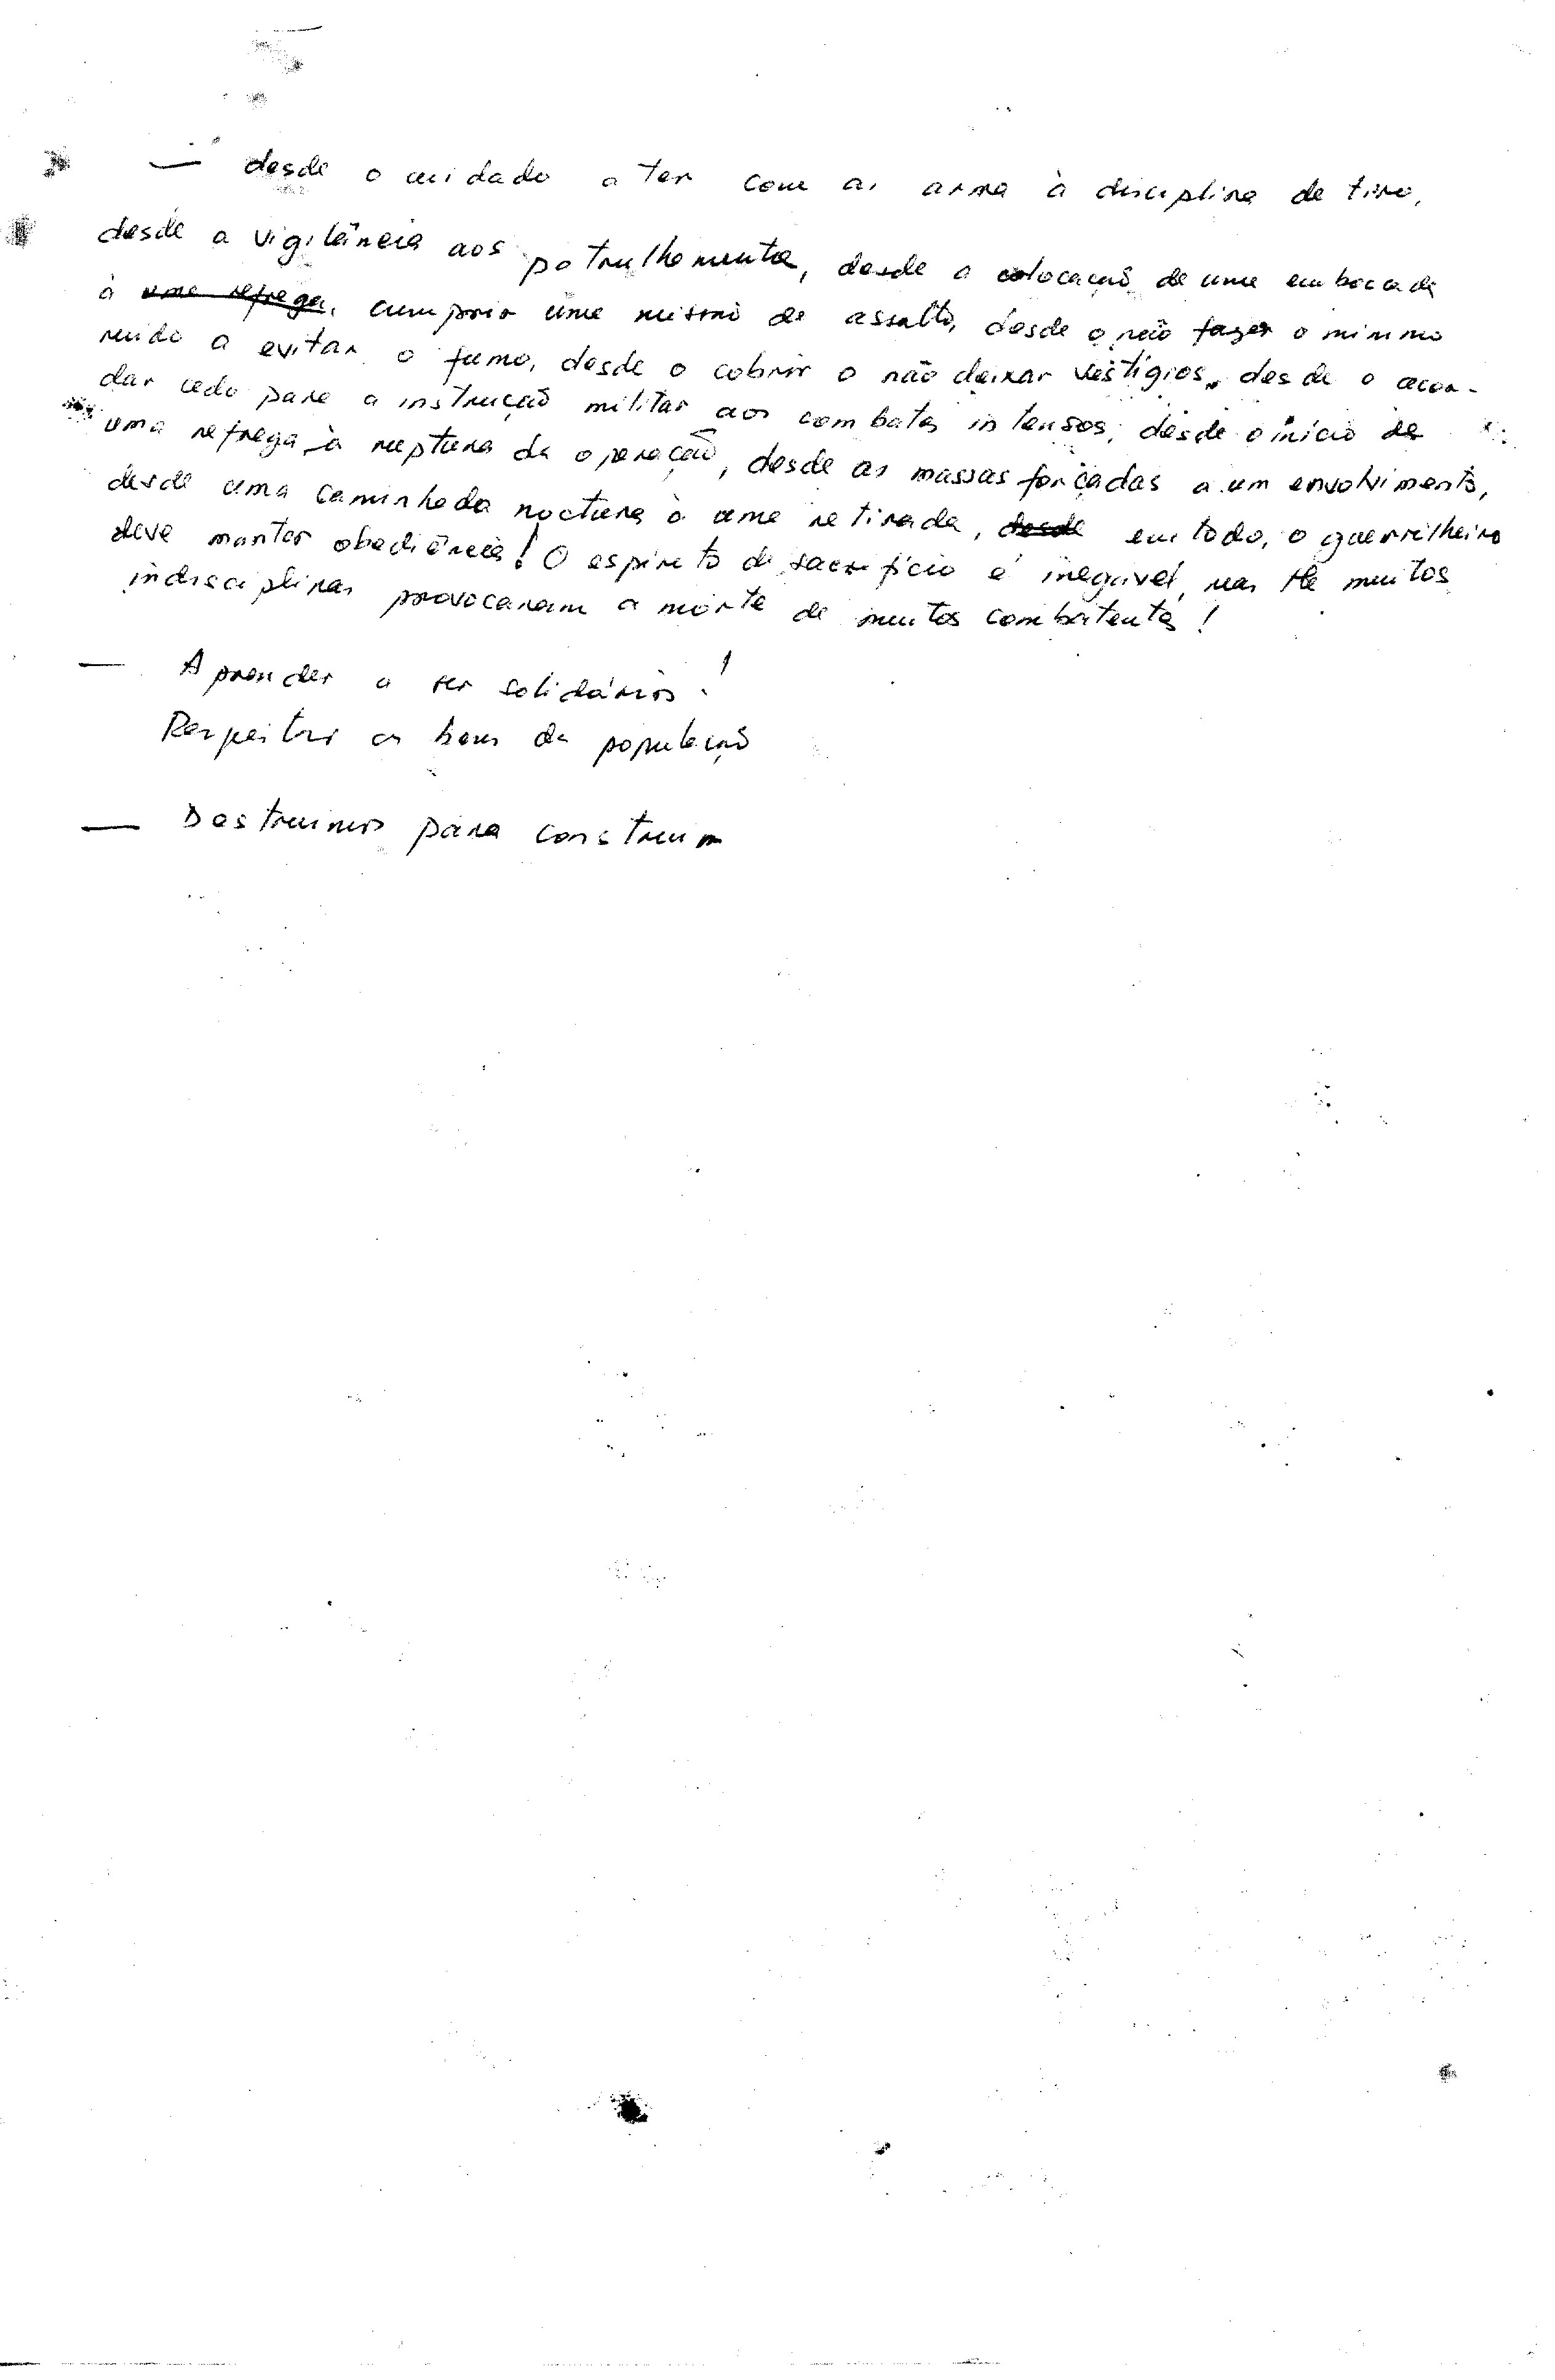 — desde o cuidado a ter com as arma à disciplina de tiro,
desde a vigilância aos patrulhamentos, desde a colocação de uma emboscada
à uma refrega, cumprir uma missão de assalto, desde o não fazer o mínimo
ruído a evitar o fumo, desde o cobrir o não deixar vestígios, desde o acor-
dar cedo para a instrução militar aos combates intensos, desde o início de
uma refrega à ruptura da operação, desde as massas forçadas a um envolvimento,
desde uma caminhada nocturna à uma retirada, desde em todo, o guerrilheiro
deve manter obediência! O espírito de sacrifício é inegável, mas muitos
indisciplinas provocaram a morte de muitos combatentes!
— Aprender a ser solidários!
Respeitar os bens da população
— Destruimos para construir